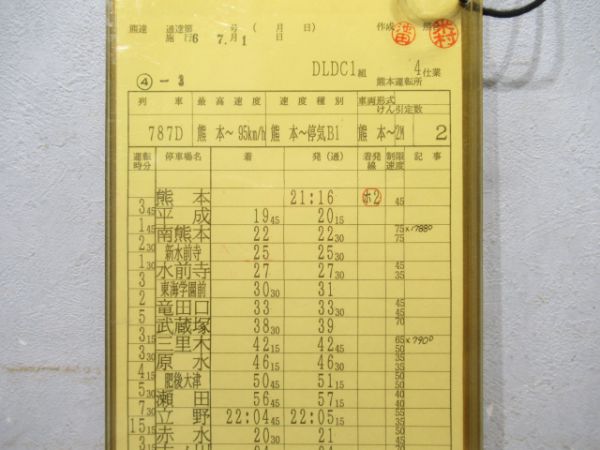 熊達 通達第 号( 月 日) 作成
施行6 7. 月1 日
DLDC1組 4仕業
④-3 熊本運転所
列 車 最高速度 速度種別 車両形式 けん引定数
787D 熊 本~ 95km/h 熊 本~停気B1 熊 本~2M 2
運転時分 停車場名 着 発(通) 着発線 制限速度 記 事
熊 本 21:16 ホ2 45
3 45 平 成 19 45 20 15
1 45 南熊本 22 22 30 75 75 ×1788D
2 30 新水前寺 25 25 30
1 30 水前寺 27 27 30 45 35
3 東海学園前 30 30 31
2 竜田口 33 33 30 45 45
5 武蔵塚 38 30 39 70
3 15 三里木 42 15 42 45 65 50 ×790D
3 30 原 水 46 15 46 30 45 35
4 15 肥後大津 50 45 51 15 50
5 30 瀬 田 56 45 57 15 40 45
7 30 立 野 22:04 45 22:05 15 55 35
15 15 赤 水 20 30 21 50